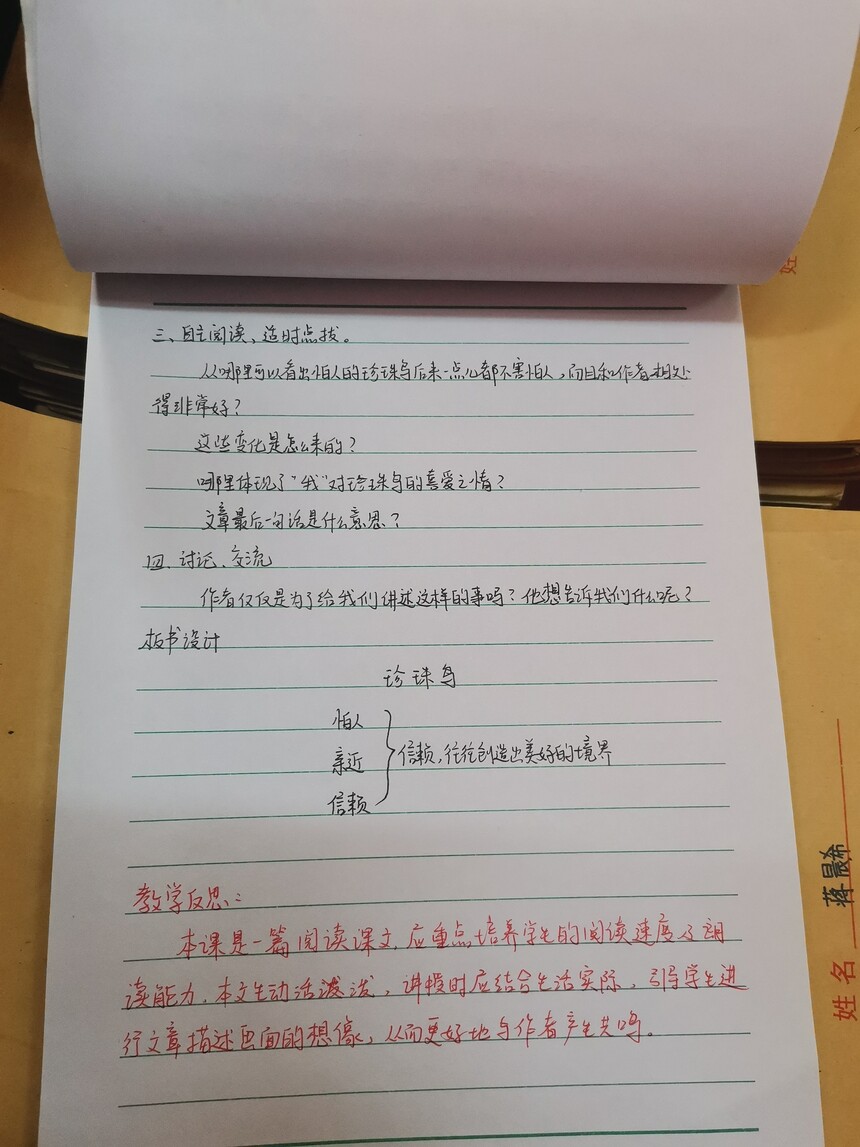 三、自主阅读、适时点拔。
从哪里可以看出怕人的珍珠鸟后来一点儿都不害怕人,而且和作者相处
得非常好?
这些变化是怎么来的?
哪里体现了“我”对珍珠鸟的喜爱之情?
文章最后一句话是什么意思?
四、讨论、交流
作者仅仅是为了给我们讲述这样的事吗?他想告诉我们什么呢?
板书设计
珍珠鸟
怕人
亲近
信赖
信赖,往往创造出美好的境界
教学反思:
本课是一篇阅读课文,应重点培养学生的阅读速度及朗
读能力,本文生动活泼,讲授时应结合生活实际,引导学生进
行文章描述画面的想像,从而更好地与作者产生共鸣。
姓
姓名 蒋晨希